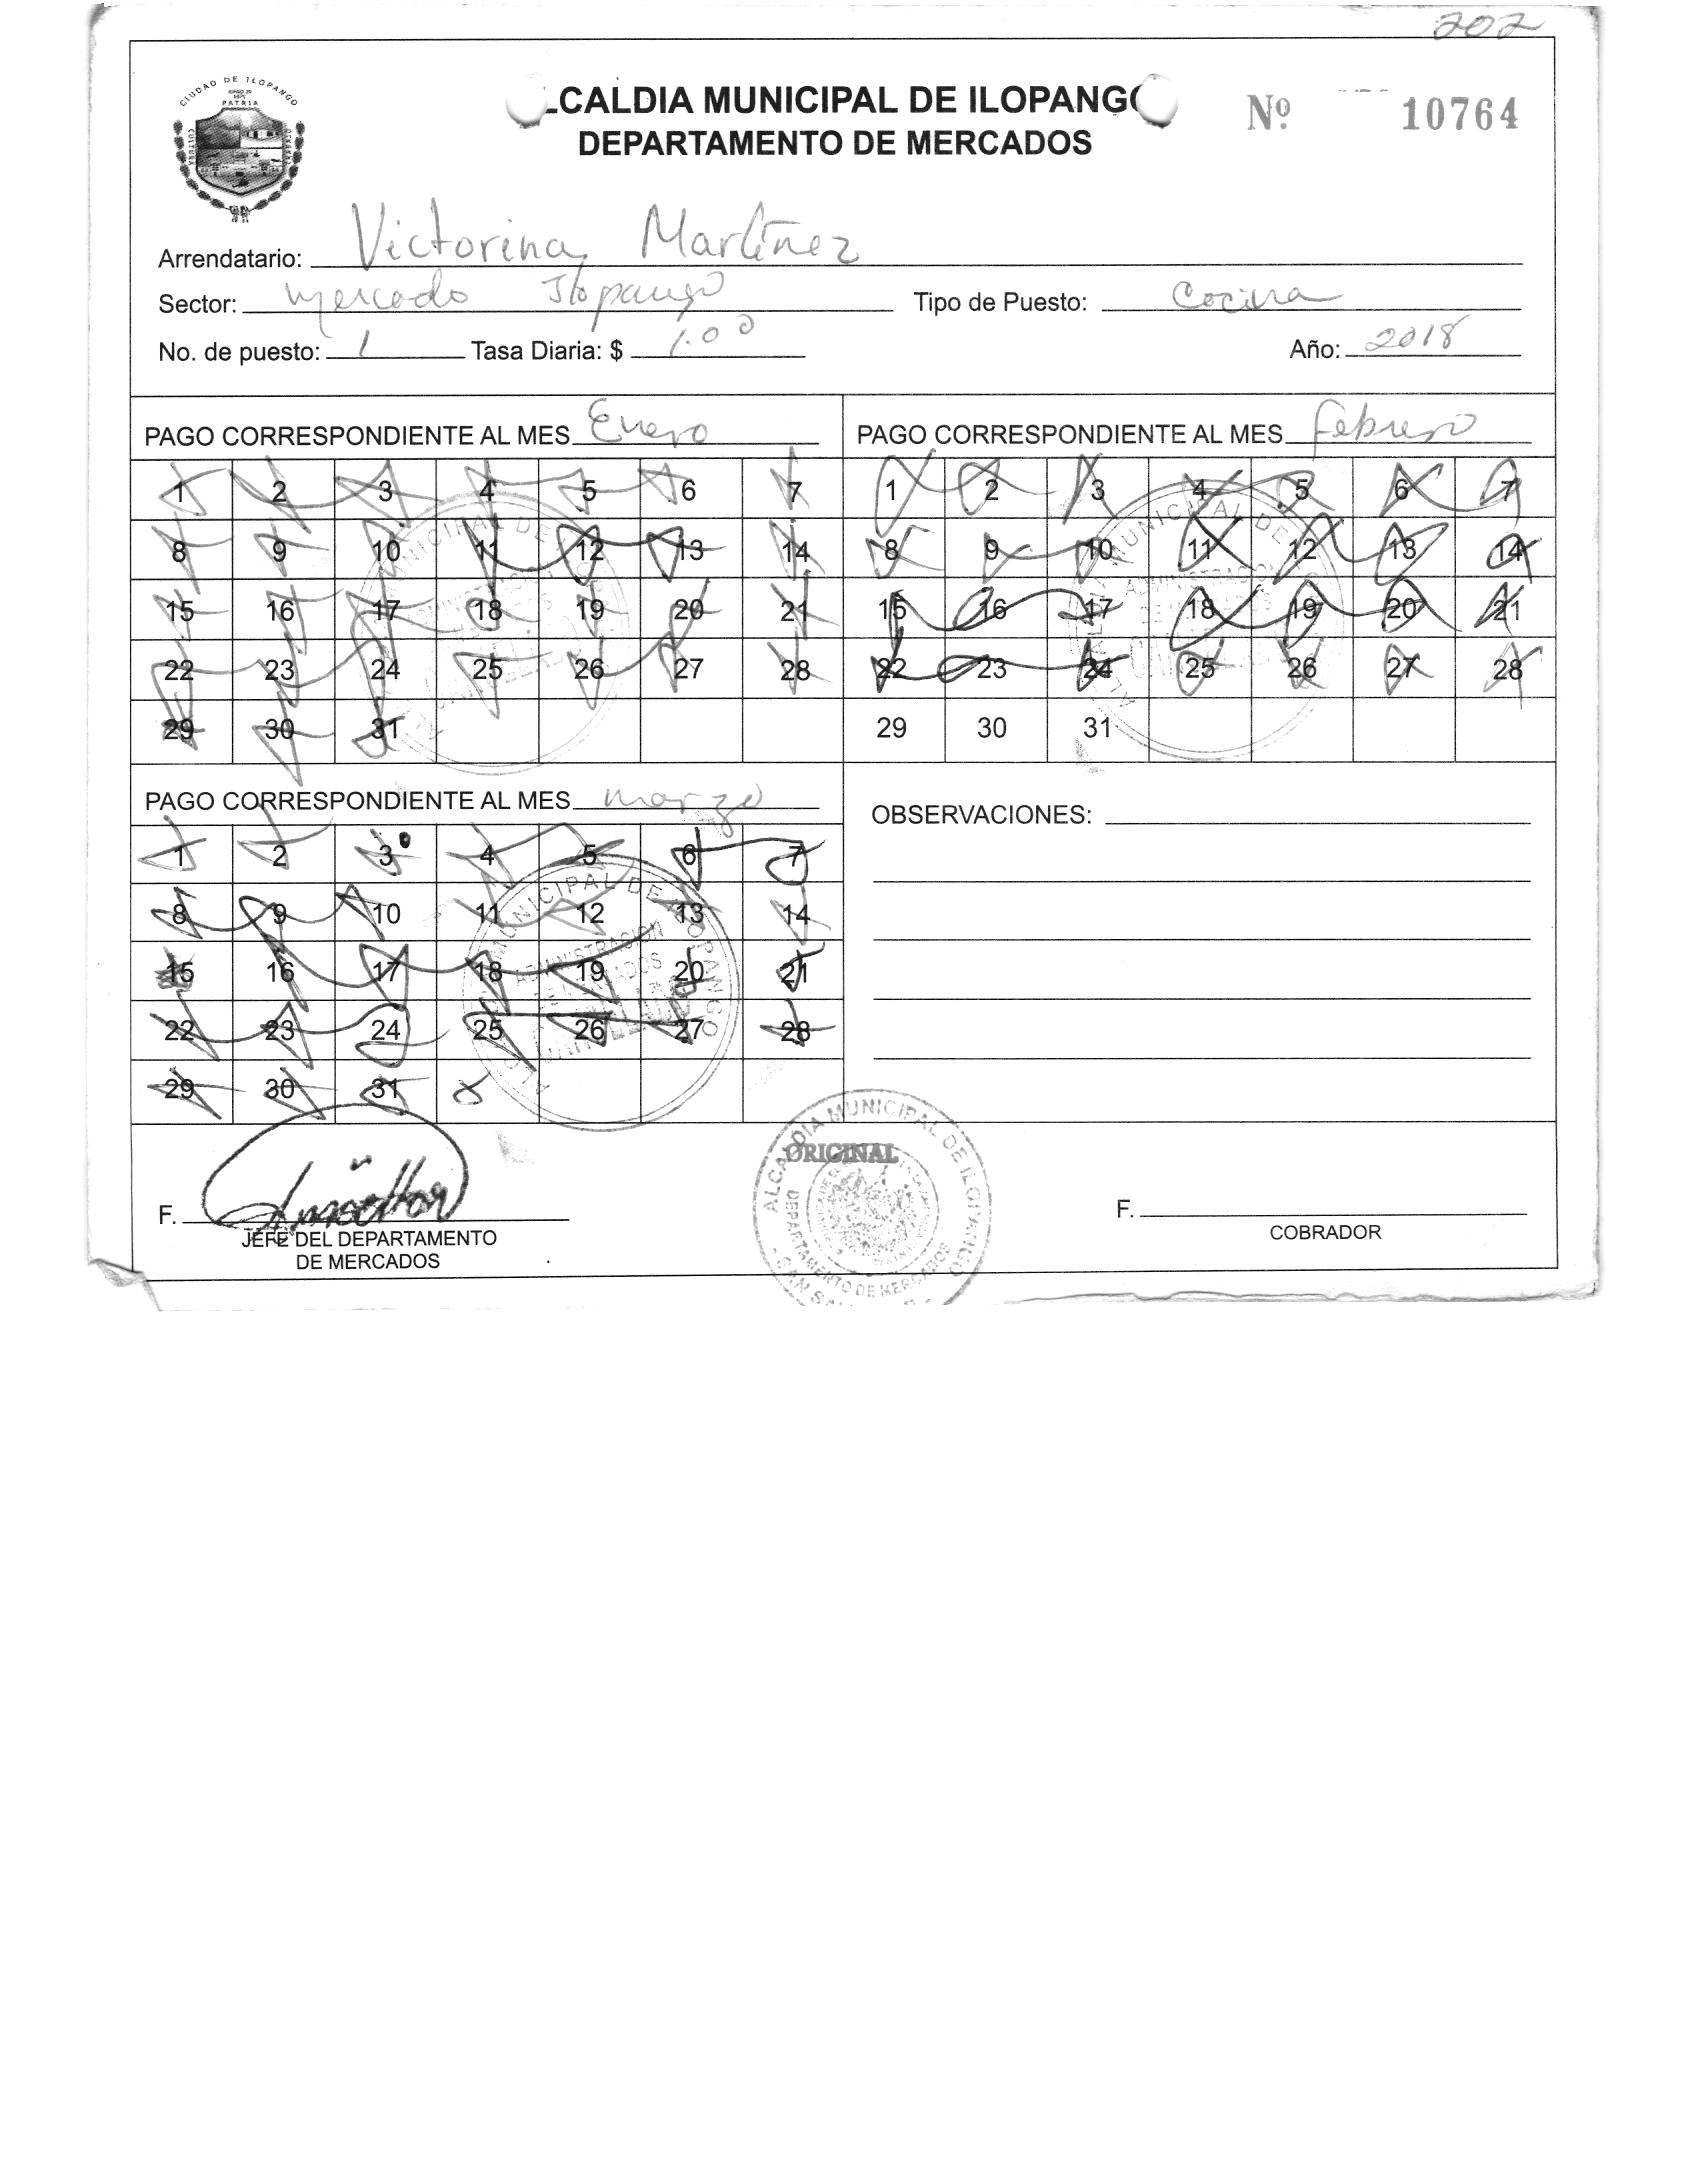 202
CIUDAD DE ILOPANGO
PATRIA
CULTURA
LCALDIA MUNICIPAL DE ILOPANGO
DEPARTAMENTO DE MERCADOS
Nº 10764
Arrendatario: Victorina Martínez
Sector: mercado Ilopango Tipo de Puesto: Cocina
No. de puesto: 1 Tasa Diaria: $ 1.00 Año: 2018
PAGO CORRESPONDIENTE AL MES Enero
1 2 3 4 5 6 7
8 9 10 11 12 13 14
15 16 17 18 19 20 21
22 23 24 25 26 27 28
29 30 31
PAGO CORRESPONDIENTE AL MES febrero
1 2 3 4 5 6 7
8 9 10 11 12 13 14
15 16 17 18 19 20 21
22 23 24 25 26 27 28
29 30 31
PAGO CORRESPONDIENTE AL MES marzo
1 2 3 4 5 6 7
8 9 10 11 12 13 14
15 16 17 18 19 20 21
22 23 24 25 26 27 28
29 30 31
MUNICIPAL DE ILOPANGO
ADMINISTRACION
OBSERVACIONES:
F.
JEFE DEL DEPARTAMENTO
DE MERCADOS
ALCALDIA MUNICIPAL DE ILOPANGO
ORIGINAL
DEPARTAMENTO DE MERCADOS
F.
COBRADOR